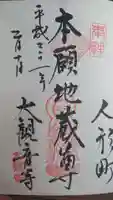 奉拝
人形町
本願地蔵尊
平成二十一年
二月十日
大観音寺